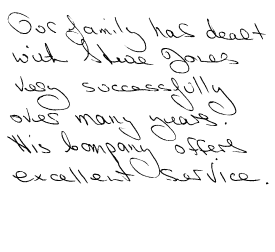 Our family has dealt
with Steve Jones
very successfully
over many years.
His Company offers
excellent service.